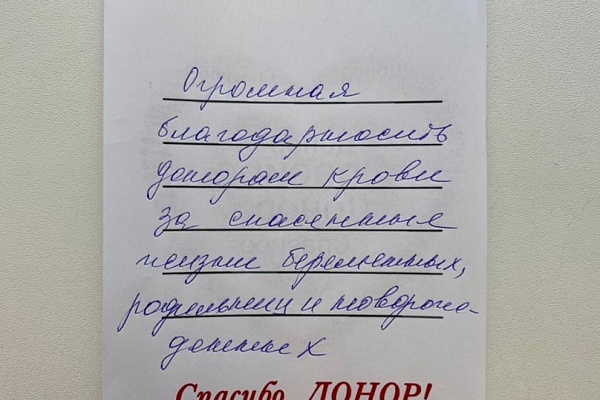 Огромная
благодарность
донорам крови
за спасенные
жизни беременных,
родильниц и новорож-
денных
Спасибо, ДОНОР!